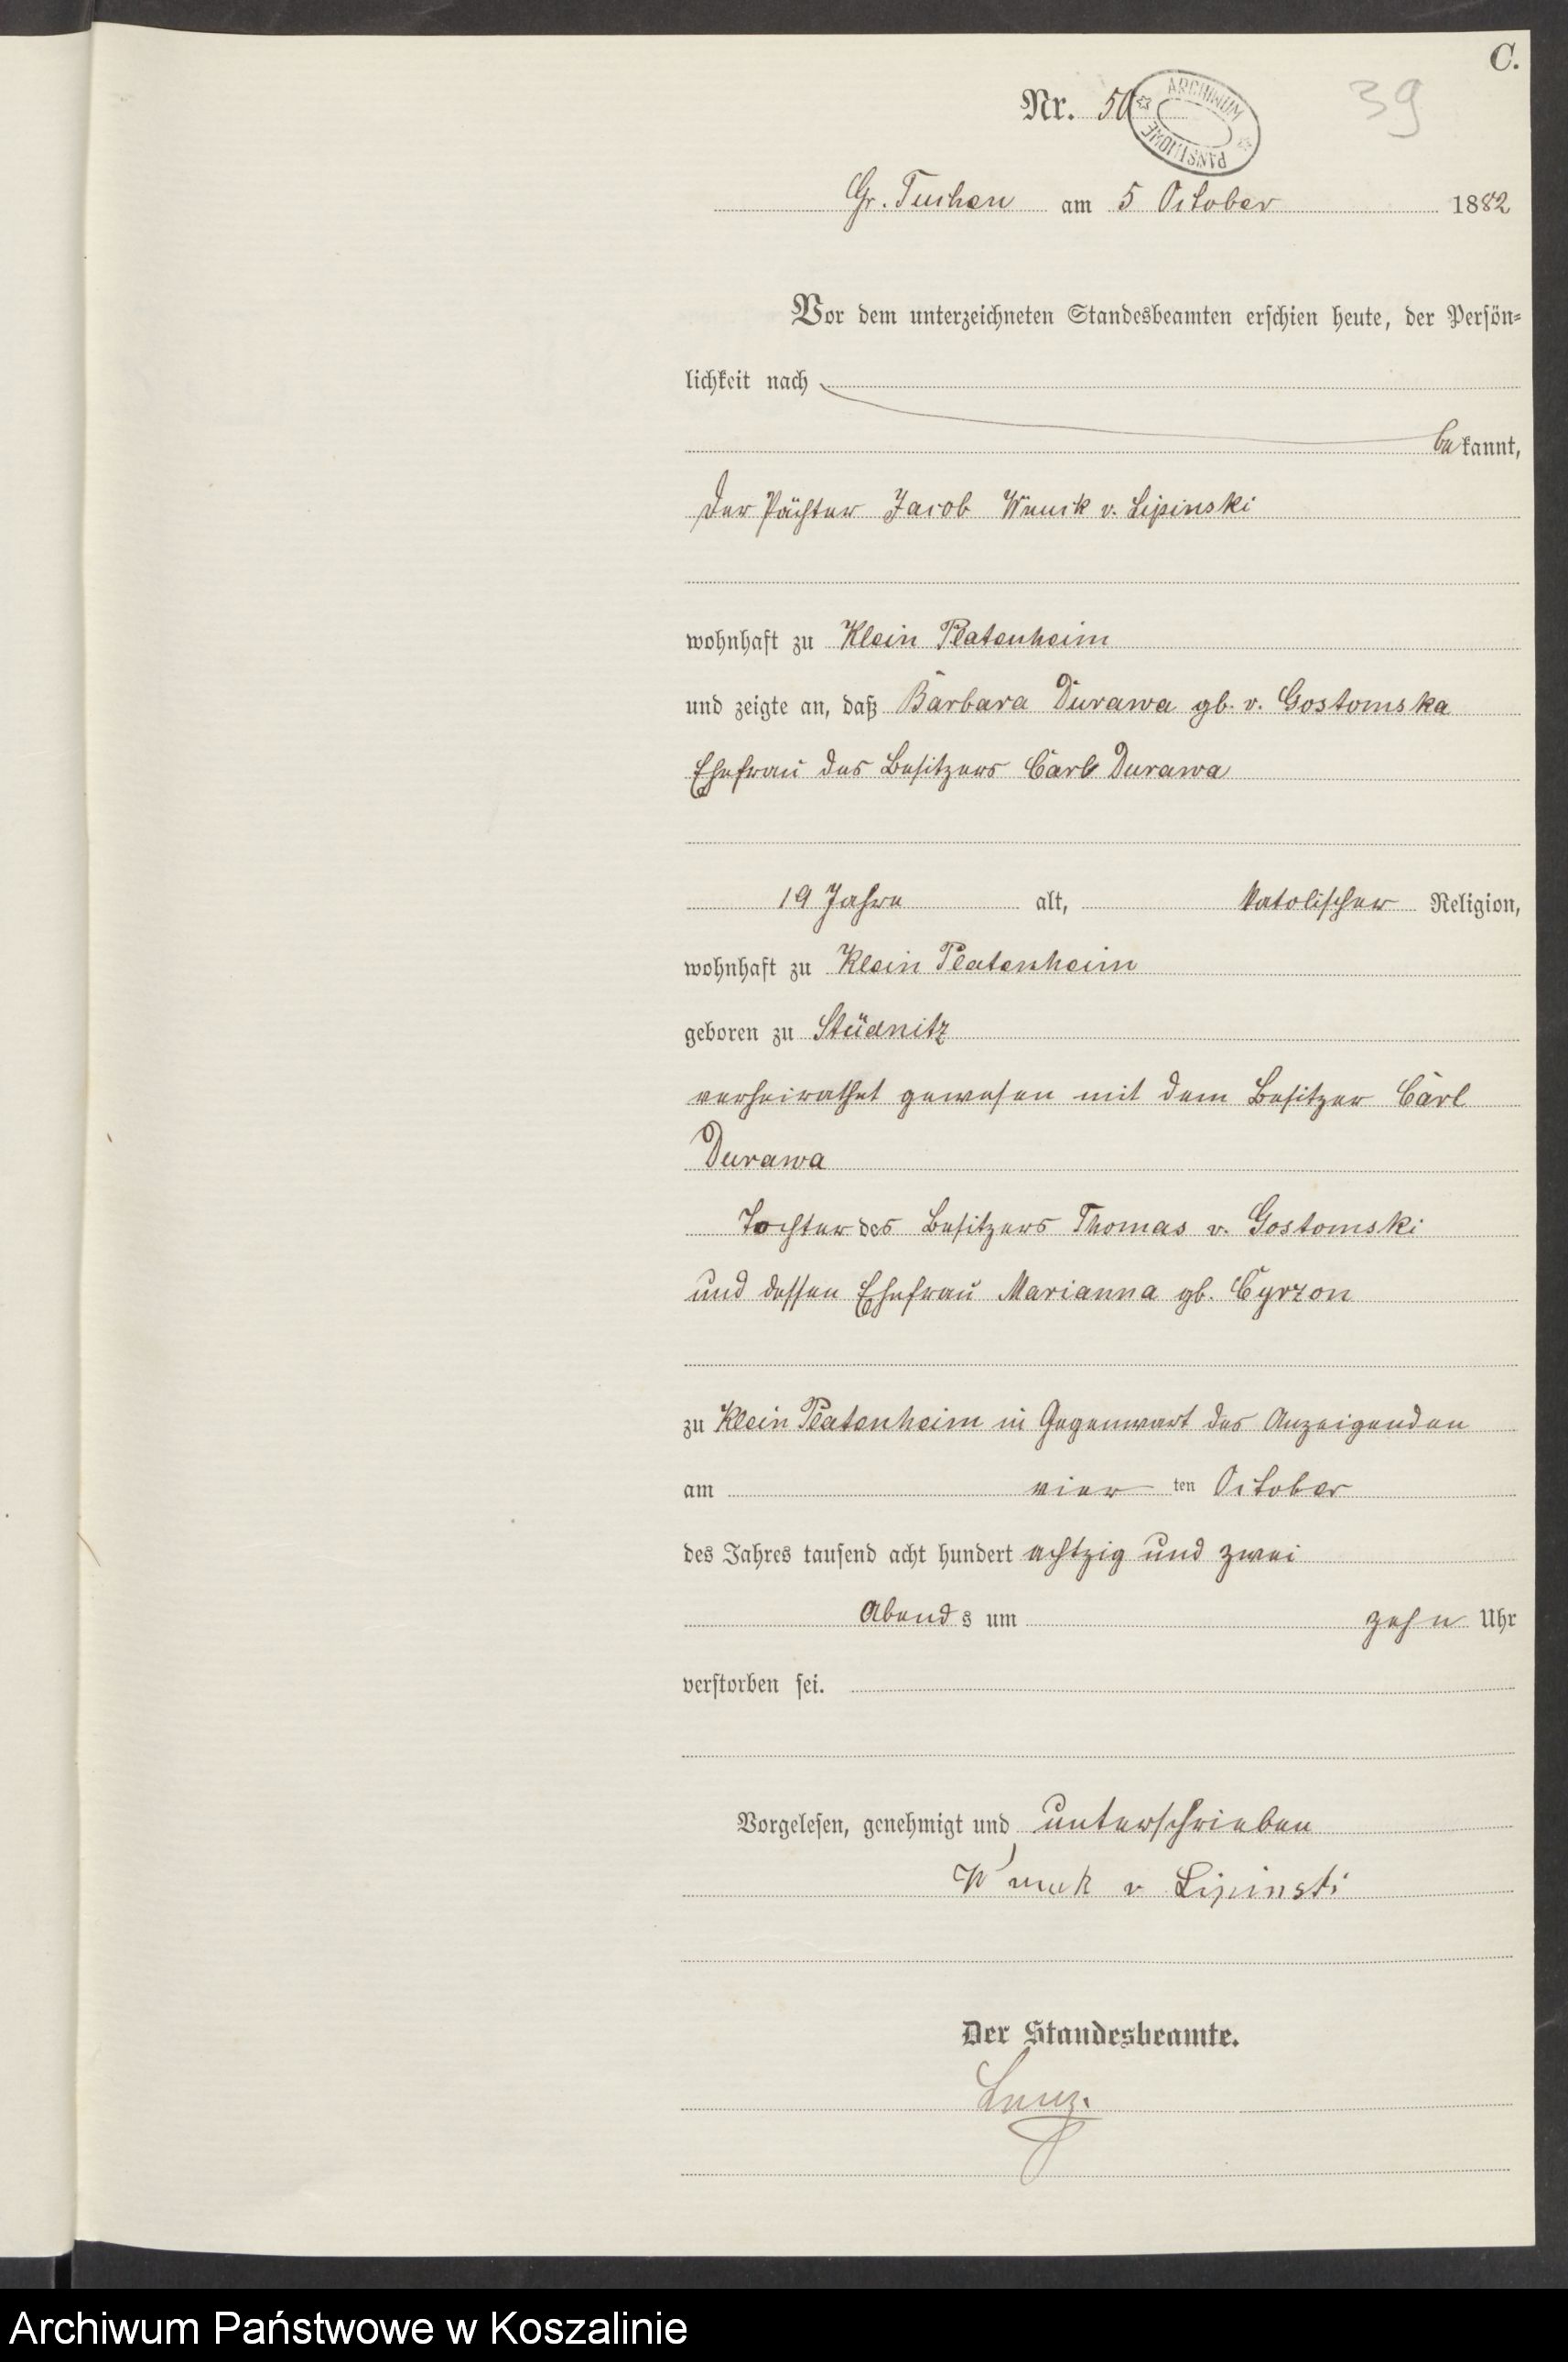 C.
Nr. 50
39
ARCHIWUM
PAŃSTWOWE
Gr. Tuchen am 5 October 1882
Vor dem unterzeichneten Standesbeamten erschien heute, der Persön-
lichkeit nach
bekannt,
der Pächter Jacob v. Lipinski
wohnhaft zu Klein Platenheim
und zeigte an, daß Barbara Durawa gb. v. Gostomska
Ehefrau des Besitzers Carl Durawa
19 Jahre alt, katolischer Religion,
wohnhaft zu Klein Platenheim
geboren zu Stüdnitz
verheirathet gewesen mit dem Besitzer Carl
Durawa
Tochter des Besitzers Thomas v. Gostomski
und dessen Ehefrau Marianna gb. Cyrzon
zu Klein Platenheim in Gegenwart des Anzeigenden
am vier ten October
des Jahres tausend acht hundert achtzig und zwei
Abends um zehn Uhr
verstorben sei.
Vorgelesen, genehmigt und unterschrieben
v Lipinski
Der Standesbeamte.
Archiwum Państwowe w Koszalinie